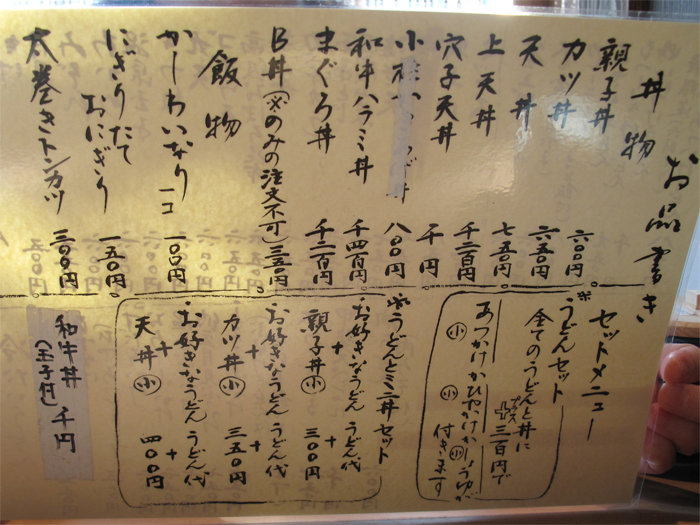 お品書き
丼物
親子丼 六〇〇円。
カツ丼 六五〇円
天丼 七五〇円
上天丼 千二百円
穴子天丼 千円
小 八〇〇円
和牛ハラミ丼 千四百円
まぐろ丼 千二百円
B丼(※のみの注文不可) 三五〇円
飯物
かしわいなり一コ 一〇〇円
にぎりたて
おにぎり 一五〇円
太巻きトンカツ 三〇〇円
セットメニュー
※うどんセット
全てのうどんと丼に
+プラス三百円で
あつかけ小かひやかけ小かしょうゆ小が
付きます
※うどんとミニ丼セット
お好きなうどん うどん代
+ +
親子丼小 三〇〇円
お好きなうどん うどん代
+ +
カツ丼小 三五〇円
お好きなうどん うどん代
+ +
天丼小 四〇〇円
和牛丼 千円
(玉子付)